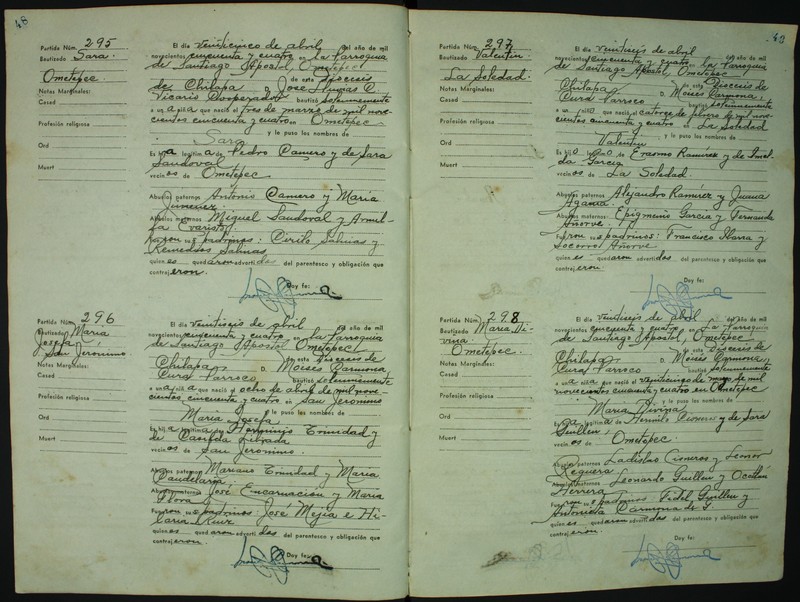 48
Partida Núm. 295
Bautizado Sara.
Ometepec.
Notas Marginales:
Casad
Profesión religiosa
Ord
Muert
El día veinticinco de abril del año de mil
novecientos cincuenta y cuatro en la Parroquia
de Santiago Apostol, Ometepec
de esta Diocesis
de Chilapa y José Llunas C.
Vicario Cooperador bautizó solemnemente
a una niña que nació el tres de marzo de mil nove-
cientos cincuenta y cuatro en Ometepec
y le puso los nombres de
Sara
Es hija legítima de Pedro Camero y de Sara
Sandoval
vecinos de Ometepec
Abuelos paternos Antonio Camero y María
Jimenez.
Abuelos maternos Miguel Sandoval y
Evaristo.
Fueron su padrinos: Cirilo Salinas y
Remedios Salinas
quienes quedaron advertidos del parentesco y obligación que
contrajeron.
Doy fe:
Partida Núm. 296
Bautizado María
Josefa,
San Jeronimo
Notas Marginales:
Casad
Profesión religiosa
Ord
Muert
El día veintiseis de abril del año de mil
novecientos cincuenta y cuatro en la Parroquia
de Santiago Apostol Ometepec
de esta Diocesis de
Chilapa o. Moisés Carmona,
Cura Parroco bautizó solemnemente
a una niña que nació el ocho de abril de mil nove-
cientos cincuenta y cuatro en San Jeronimo
y le puso los nombres de
María Josefa
Es hija legítima de Herminio Trinidad y
de Casilda
vecinos de San Jeronimo.
Abuelos paternos Mariano Trinidad y María
Candelaria
Abuelos maternos José Encarnación y María
Flora
Fueron su padrinos José Mejía e Hi-
laria Ruiz
quienes quedaron advertidos del parentesco y obligación que
contrajeron.
Doy fe:
49
Partida Núm. 297
Bautizado Valentin.
La Soledad.
Notas Marginales:
Casad
Profesión religiosa
Ord
Muert
El día veintiseis de abril del año de mil
novecientos cincuenta y cuatro en la Parroquia
de Santiago Apostol, Ometepec
de esta Diocesis de
Chilapa o. Moisés Carmona,
Cura Parroco bautizó solemnemente
a un niño que nació el catorce de de mil nove-
cientos cincuenta y cuatro en La Soledad
y le puso los nombres de
Valentin
Es hijo de Erasmo Ramírez y de Imel-
da Garcia
vecinos de La Soledad.
Abuelos paternos Alejandro Ramírez y Juana
Agama.
Abuelos maternos: Epigmenio Garcia y Fernanda
Añorve.
Fueron su padrinos: Francisco Ibarra y
Socorro Añorve
quienes quedaron advertidos del parentesco y obligación que
contrajeron.
Doy fe:
Partida Núm. 298
Bautizado María Di-
vina.
Ometepec.
Notas Marginales:
Casad
Profesión religiosa
Ord
Muert
El día veintiseis de abril del año de mil
novecientos cincuenta y cuatro en la Parroquia
de Santiago Apostol, Ometepec
de esta Diocesis de
Chilapa o. Moisés Carmona,
Cura Parroco bautizó solemnemente
a una niña que nació el veinticinco de de mil
novecientos cincuenta y cuatro en Ometepec
y le puso los nombres de
María Divina
Es hija legítima de Hermilo Cisneros y de Sara
Guillen
vecinos de Ometepec.
Abuelos paternos Ladislao Cisneros y Leonor
Reguera
Abuelos maternos Leonardo Guillen y Ocotlán
Herrera
Fueron su padrinos Fidel Guillen y
Antonieta Carmona de G.
quienes quedaron advertidos del parentesco y obligación que
contrajeron.
Doy fe: